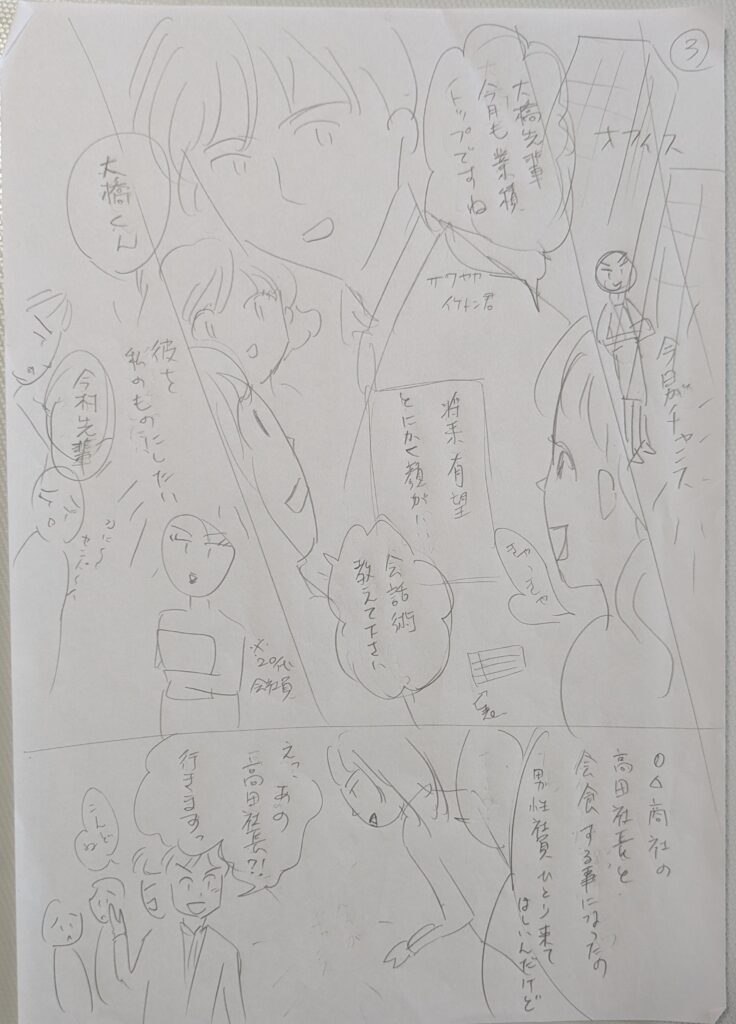 3
オフィス
今日がチャンス
大橋先輩
今月も業績
トップですね
サワヤカ
イケメン君
将来有望
とにかく顔がいい
きゃっきゃ
会話術
教えて下さい
大橋くん
彼を
私のものにしたい
今村先輩
※20代
会社員
〇△商社の
高田社長と
会食する事になったの
男性社員ひとり来て
ほしいんだけど
えっ、あの
高田社長?!
行きますっ
こんど
ね